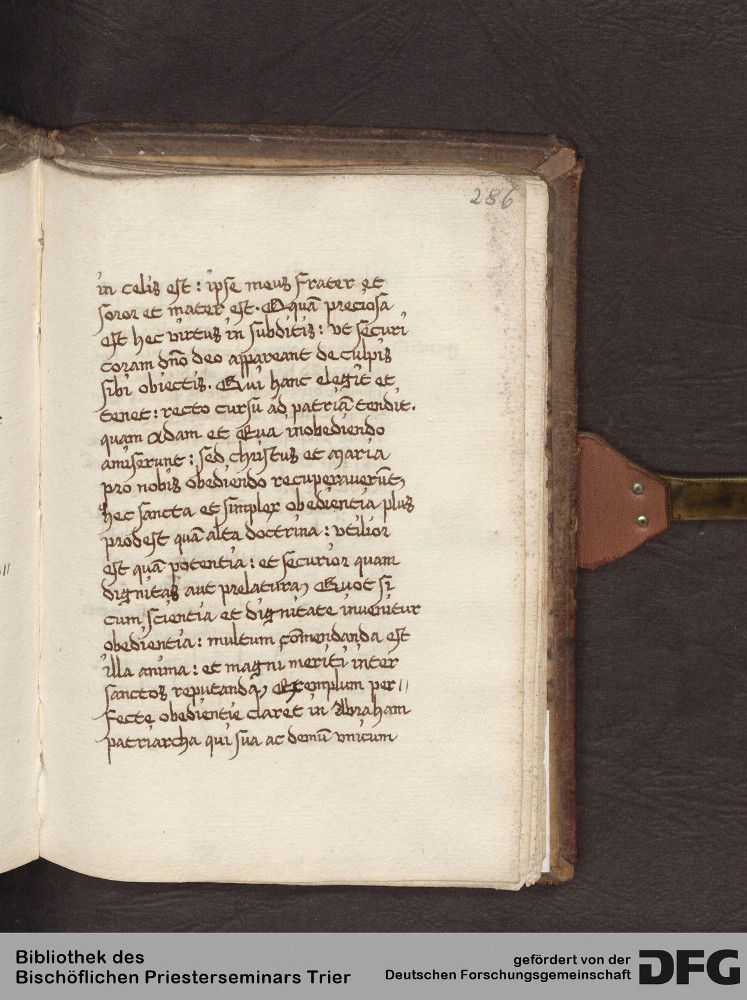 286
in celis est : ipse meus frater et
soror et mater est. O quā preciosa
est hec virtus in subditis : vt securi
coram dn̄o deo appareant de culpis
sibi obiectis. Qui hanc elegit et
tenet : recto cursu ad patriā tendit.
quam Adam et Eua inobediendo
amiserunt : sed christus et Maria
pro nobis obediendo recuperauerūt,
hec sancta et simplex obedientia plus
prodest quā alta doctrina : vtilior
est quā potentia : et securior quam
dignitas aut prelatura, Quot si
cum scientia et dignitate inuenitur
obedientia : multum cōmendanda est
illa anima : et magni meriti inter
sanctos reputanda, Exemplum per//
fecte obedientie claret in Abraham
patriarcha qui sua ac demū vnicum
//
Bibliothek des
Bischöflichen Priesterseminars Trier
gefördert von der
Deutschen Forschungsgemeinschaft
DFG